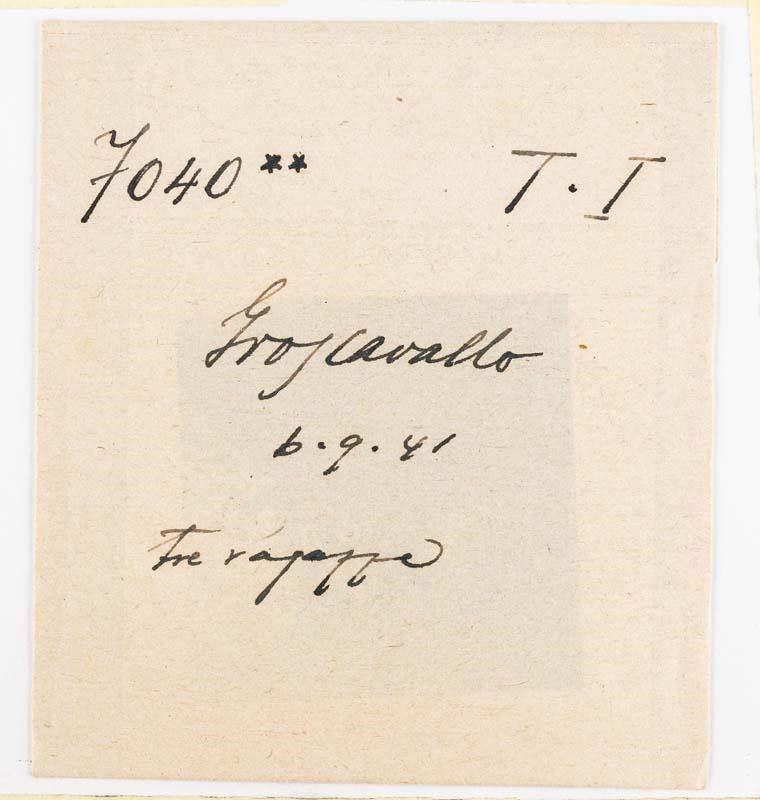 7040** T.I
Groscavallo
6.9.41
tre ragazze